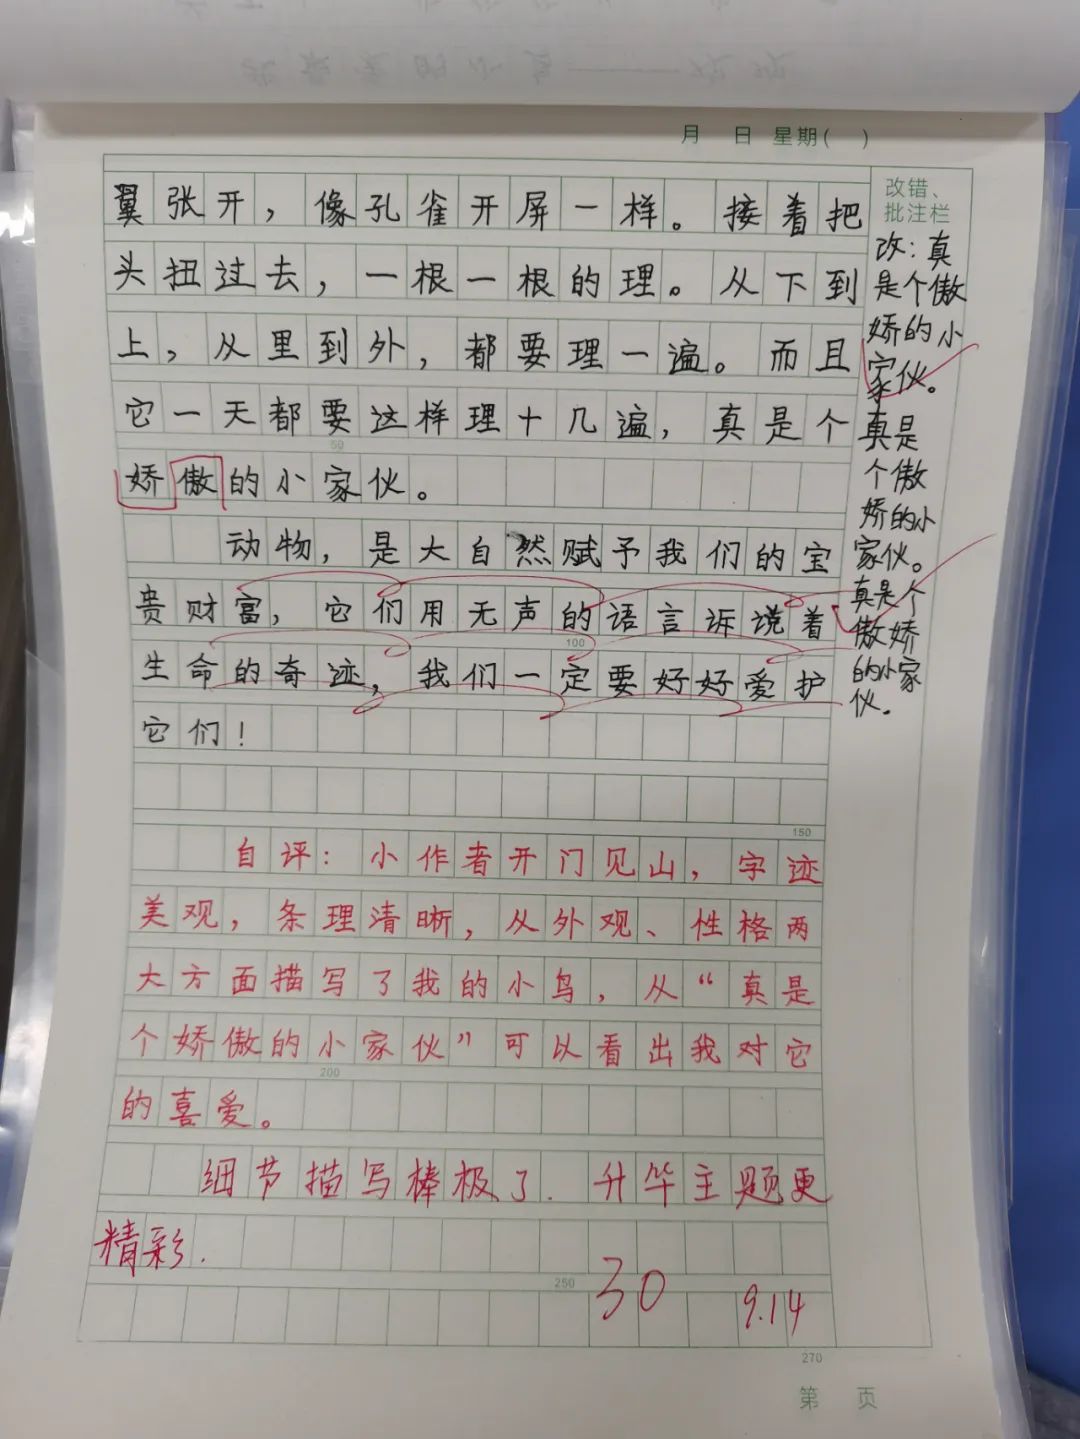 月 日 星期( )
翼张开，像孔雀开屏一样。接着把
头扭过去，一根一根的理。从下到
上，从里到外，都要理一遍。而且
它一天都要这样理十几遍，真是个
50
娇傲的小家伙。
动物，是大自然赋予我们的宝
贵财富，它们用无声的语言诉说着
100
生命的奇迹，我们一定要好好爱护
它们！
150
自评：小作者开门见山，字迹
美观，条理清晰，从外观、性格两
大方面描写了我的小鸟，从“真是
个娇傲的小家伙”可以看出我对它
200
的喜爱。
细节描写棒极了.升华主题更
精彩.
250
30
9.14
270
第 页
改错、
批注栏
改：真
是个傲
娇的小
家伙。
真是
个傲
娇的小
家伙。
真是个
傲娇
的小家
伙。